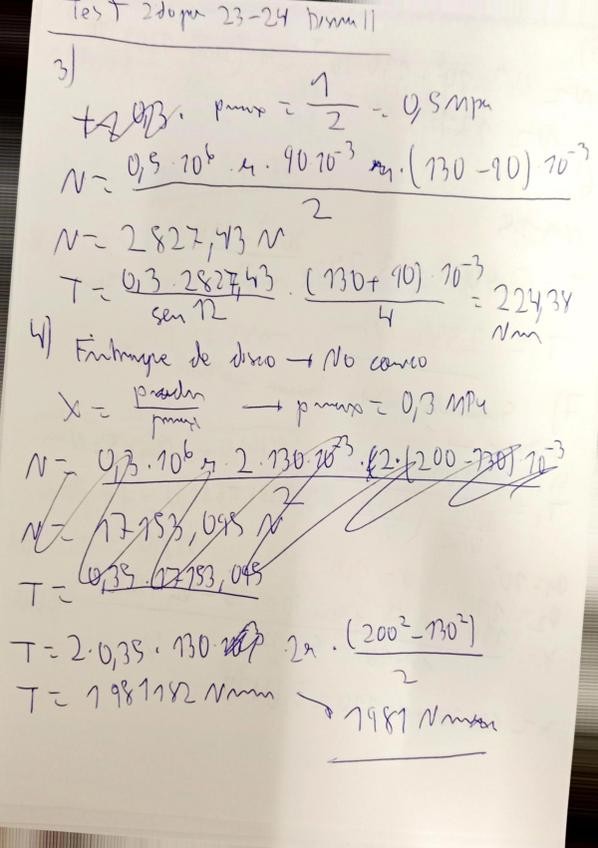 Test 2do par 23-24 Dinam II
3)
pmax = 1/2 = 0,5 Mpa
N = 0,5·10⁶·π·90·10⁻³·(130-90)·10⁻³ / 2
N = 2827,43 N
T = 0,3·2827,43 / sen 12 · (130+90)·10⁻³ / 4 = 224,38 Nm
4) Embrague de disco → No conico
X = / pmax → pmax = 0,3 MPa
N = 0,3·10⁶ π·2·130·10⁻³·(2·(200-130)·10⁻³ / 2
N = 17153,095 N
T = 0,35·17153,095
T = 2·0,35·130· · 2π·(200²-130²) / 2
T = 1981182 Nmm → 1981 Nm